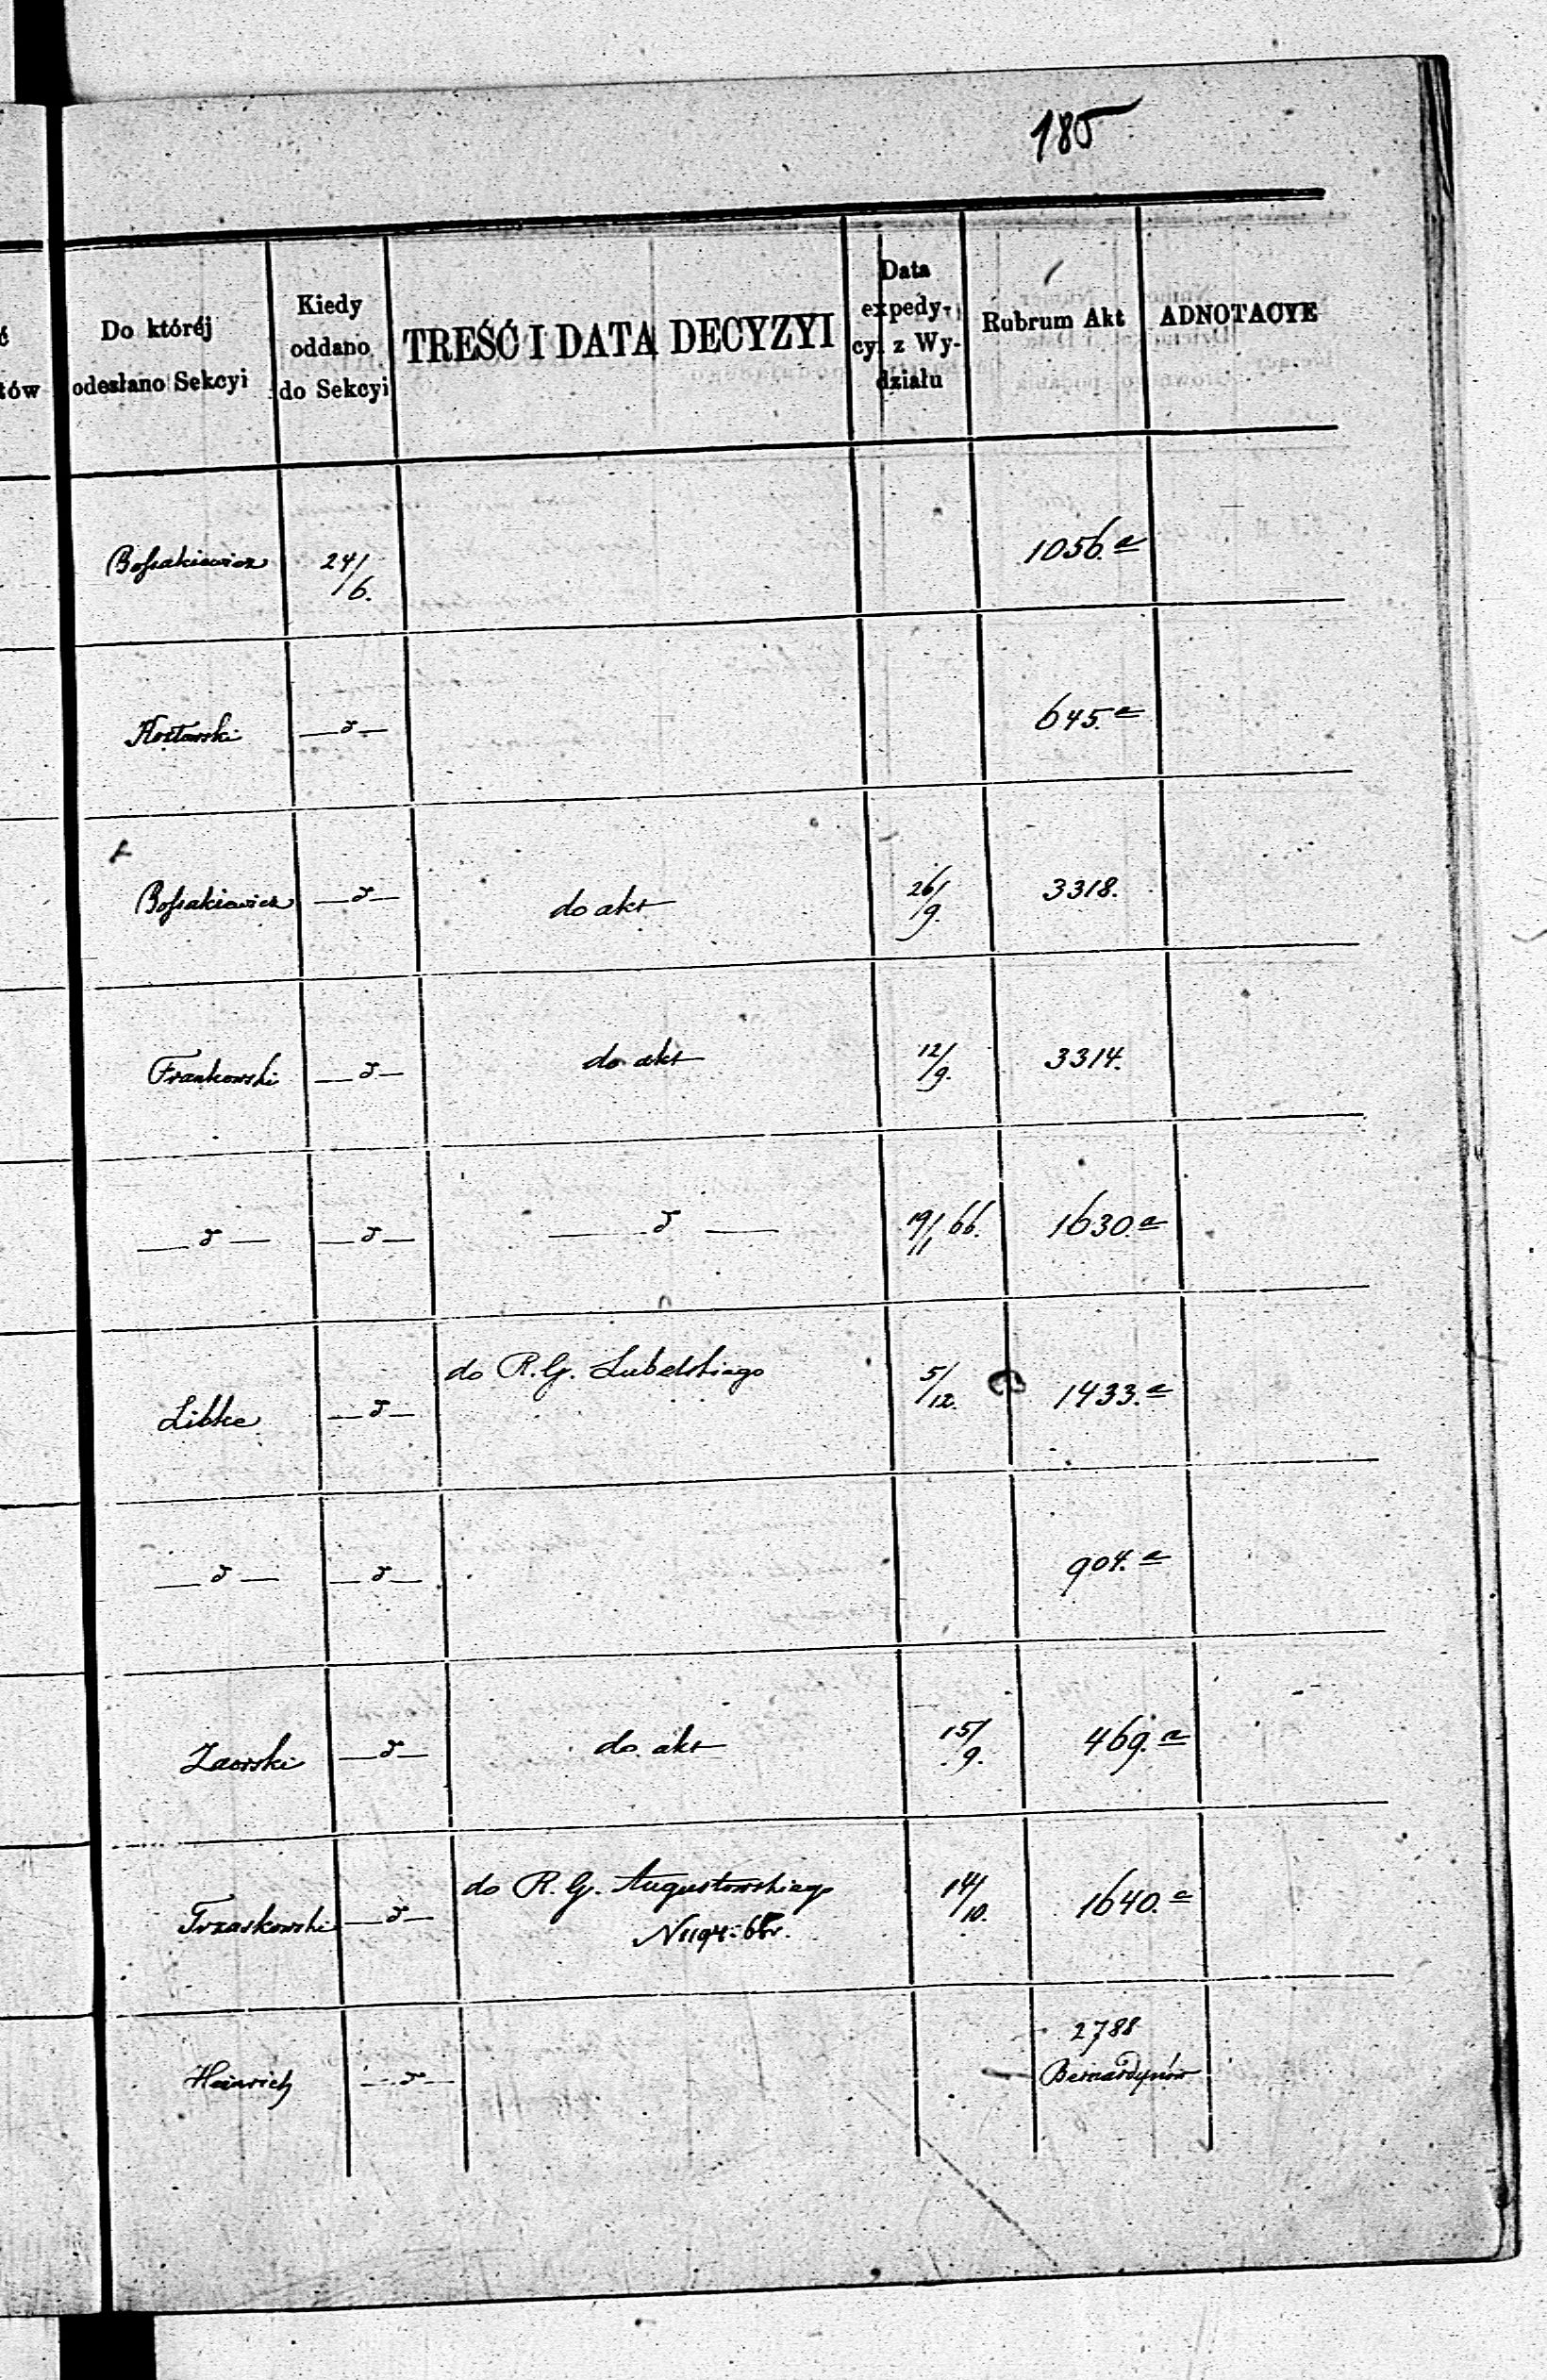 185
ć
tów
Do któréj
odesłano Sekcyi
Kiedy
oddano
do Sekcyi
TREŚĆ I DATA DECYZYI
Data
expedy-
cyi z Wy-
działu
Rubrum Akt
ADNOTACYE
Bossakiewicz 24/6. 1056.a
—d— 645.a
Bossakiewicz —d— do akt 26/9. 3318.
Frankowski —d— do akt 12/9. 3314.
—d— —d— —d— 19/11 66. 1630.a
Libke —d— do R. G. Lubelskiego 5/12. 1433.a
—d— —d— 904.a
Zaorski —d— do akt 15/9. 469.a
Trzaskowski —d— do R. G. Augustowskiego 14/10. 1640.a
Heinrich —d— 2788
Bernardynów